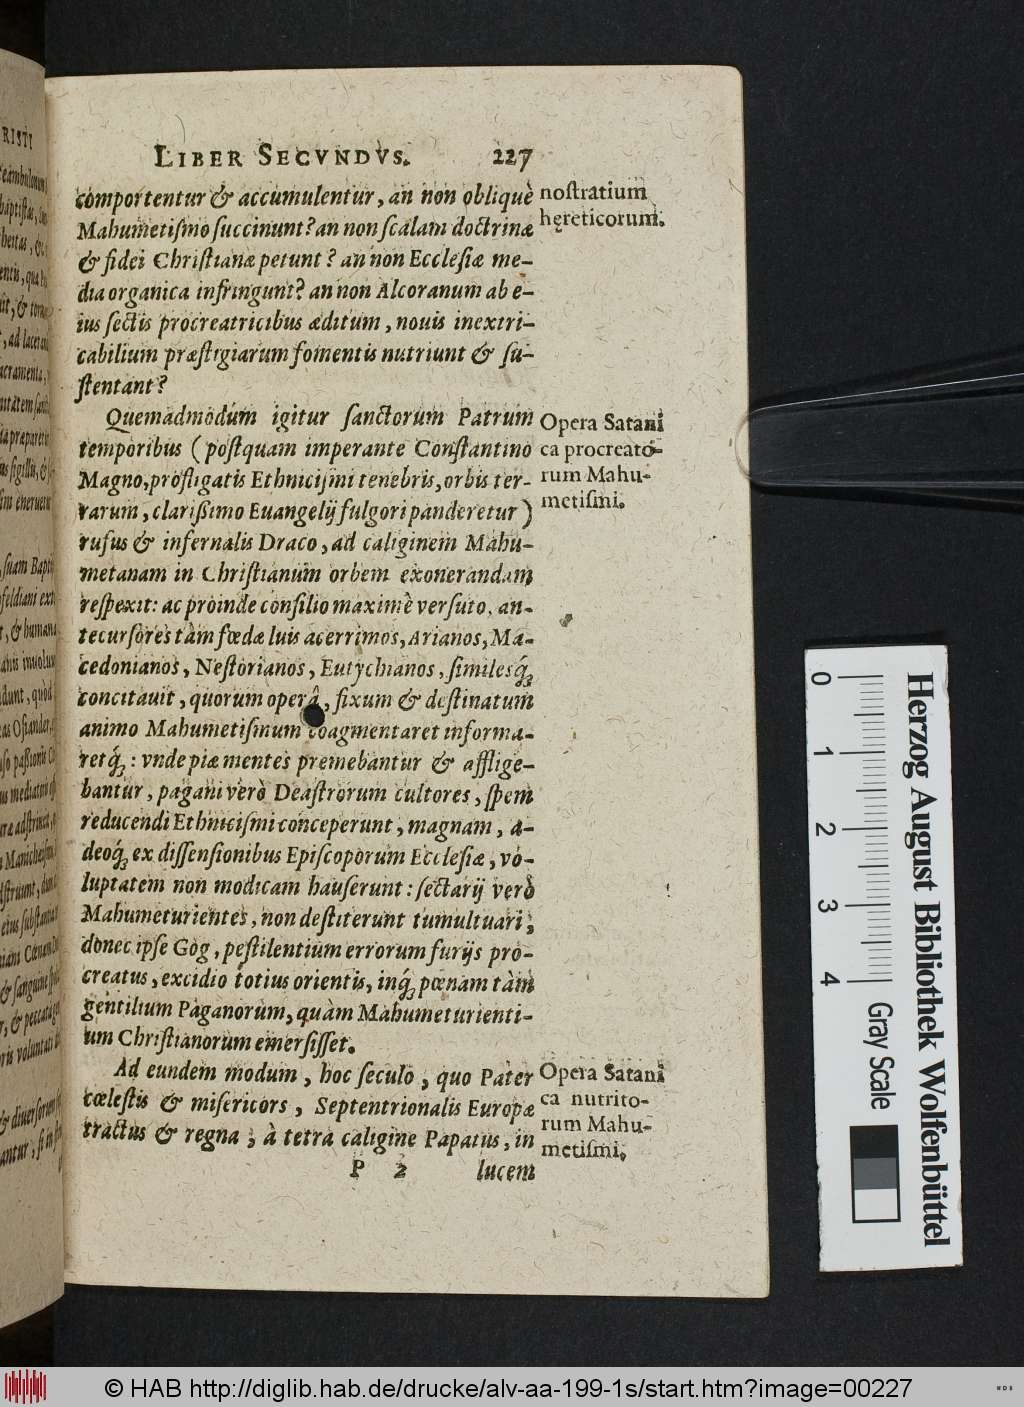 LIBER SECVNDVS. 227
comportentur & accumulentur, an non obliquè
Mahumetiſmo ſuccinunt? an non ſcalam doctrinæ
& fidei Chriſtianæ petunt? an non Eccleſiæ me-
dia organica infringunt? an non Alcoranum ab e-
ius ſectis procreatricibus æditum, nouis inextri-
cabilium præſtigiarum fomentis nutriunt & ſu-
ſtentant?
noſtratium
hęreticorum.
Quemadmodúm igitur ſanctorum Patrum
temporibus (poſtquam imperante Conſtantino
Magno, profligatis Ethniciſmi tenebris, orbis ter-
rarum, clariſſimo Euangelij fulgori panderetur)
rufus & infernalis Draco, ad caliginem Mahu-
metanam in Chriſtianum orbem exonerandam
reſpexit: ac proinde conſilio maximè verſuto, an-
tecurſores tàm fœdæ luis acerrimos, Arianos, Ma-
cedonianos, Neſtorianos, Eutychianos, ſimilesq́;
concitauit, quorum operâ, fixum & deſtinatum
animo Mahumetiſmum coagmentaret informa-
retq́;: vnde piæ mentes premebantur & afflige-
bantur, pagani verò Deaſtrorum cultores, ſpem
reducendi Ethniciſmi conceperunt, magnam, a-
deoq́; ex diſſenſionibus Epiſcoporum Eccleſiæ, vo-
luptatem non modicam hauſerunt: ſectarij verò
Mahumeturientes, non deſtiterunt tumultuari;
donec ipſe Gog, peſtilentium errorum furijs pro-
creatus, excidio totius orientis, inq́; pœnam tàm
gentilium Paganorum, quàm Mahumeturienti-
um Chriſtianorum emerſiſſet.
Opera Satani
ca procreato-
rum Mahu-
metiſmi.
Ad eundem modum, hoc ſeculo, quo Pater
cœleſtis & miſericors, Septentrionalis Europæ
tractus & regna; à tetra caligine Papatus, in
P 2 lucem
Opera Satani
ca nutrito-
rum Mahu-
metiſmi.
0 1 2 3 4
Herzog August Bibliothek Wolfenbüttel
Gray Scale
© HAB http://diglib.hab.de/drucke/alv-aa-199-1s/start.htm?image=00227